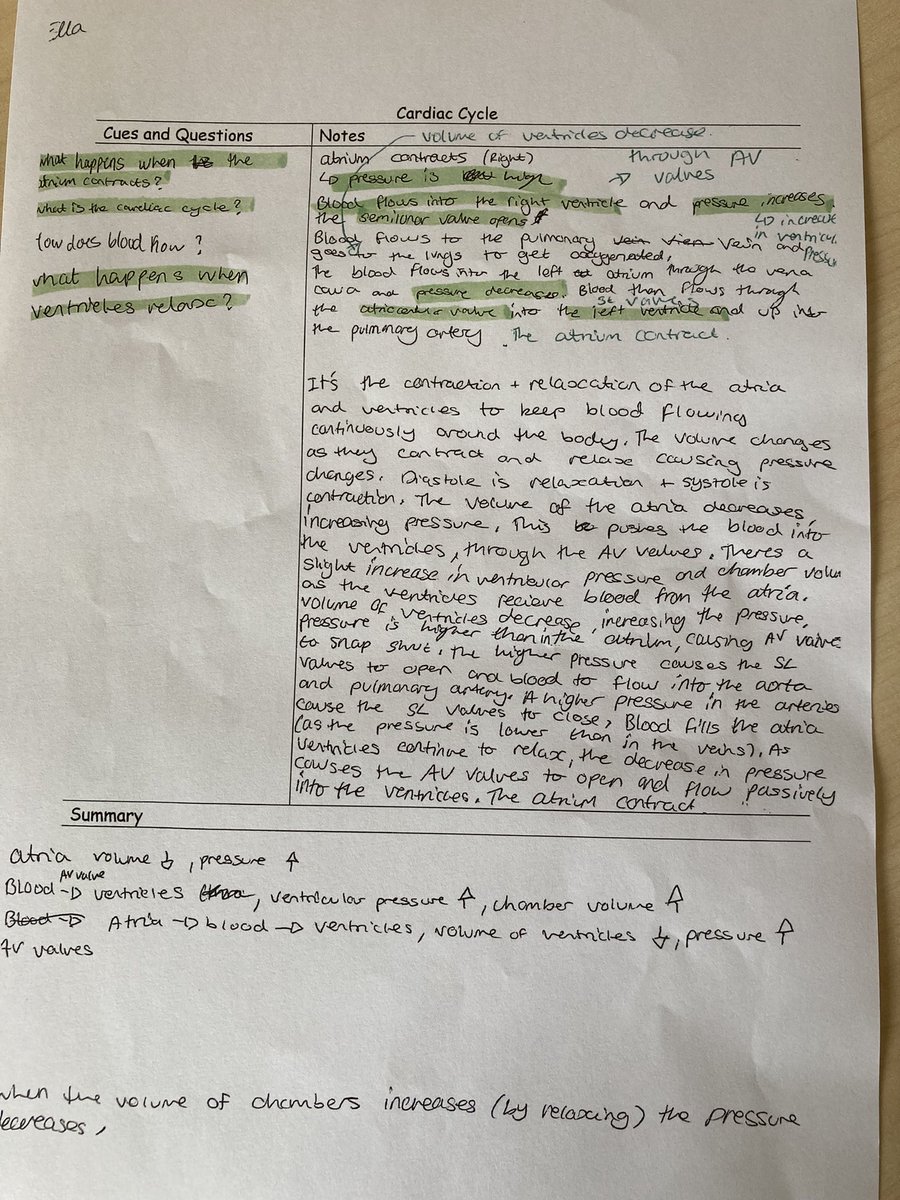 Ella
Cardiac Cycle
Cues and Questions
what happens when the
atrium contracts?
what is the cardiac cycle?
How does blood flow?
what happens when
ventricles relaxe?
Notes
volume of ventricles decrease.
atrium contracts (Right)
through AV
↳ pressure is high
→ valves
Blood flows into the right ventricle and pressure increases,
the semilunar valve opens
↳ increase
in ventricul
pressure
Blood flows to the pulmonary vein and
goes to the lungs to get oxygenated,
The blood flows into the left atrium through the vena
cava and pressure decreases. Blood then flows through
SL valves
the atrioventricular valve into the left ventricle and up into
the pulmonary artery. The atrium contract.
It's the contraction + relaxcation of the atria
and ventricles to keep blood flowing
continuously around the body. The volume changes
as they contract and relaxe causing pressure
changes. Diastole is relaxation + systole is
contraction. The volume of the atria decreases,
increasing pressure. This pushes the blood into
the ventricles, through the AV valves. Theres a
slight increase in ventricular pressure and chamber volu
as the ventricles recieve blood from the atria.
volume of ventricles decrease, increasing the pressure,
pressure is higher than in the atrium, causing AV valve
to snap shut. the higher pressure causes the SL
valves to open and blood to flow into the aorta
and pulmonary artery. A higher pressure in the arteries
cause the SL valves to close, Blood fills the atria
(as the pressure is lower than in the veins). As
ventricles continue to relax, the decrease in pressure
causes the AV valves to open and flow passively
into the ventricles. The atrium contract
Summary
atria volume ↓, pressure ↑
AV valve
Blood → ventricles, ventricular pressure ↑, chamber volume ↑
Blood → Atria → blood → ventricles, volume of ventricles ↓, pressure ↑
AV valves
when the volume of chambers increases (by relaxing) the pressure
decreases,